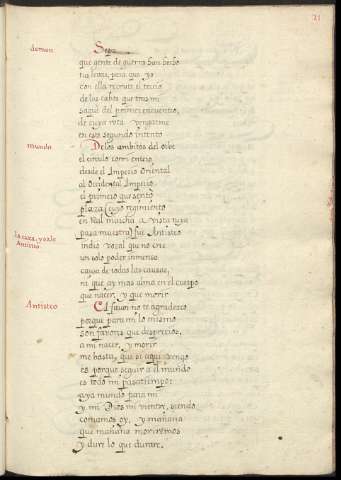 21
demon. Sepa
que gente de guerra San
tia leua, para que yo
con ella reclute el tercio
de los cabos que tras mi
saqué del primer encuentro,
de cuya rota vengarme
en este segundo intento
mundo De los ambitos del orbe
el circulo corri entero,
desde el Imperio oriental
al Occidental Imperio
el primero que sentó
plaza (cuyo regimiento
en Real marcha a vista tuya
la caxa, y sale
Antisteo
pasa muestra) fue Antisteo
indio vozal que no cree
un solo poder inmenso
causa de todas las causas,
ni que ay mas alma en el cuerpo
que nacer, y que morir
Antisteo El fauor no te agradezco
porque para mi lo mismo
son fauores que desprecios,
a mi nacer, y morir
me basta, que si aqui vengo
es porque seguir a el mundo
es todo mi pasatiempo:
aya mundo para mi
y mi Dios mi vientre, siendo
comamos oy, y mañana
que mañana moriremos
y dure lo que durare.